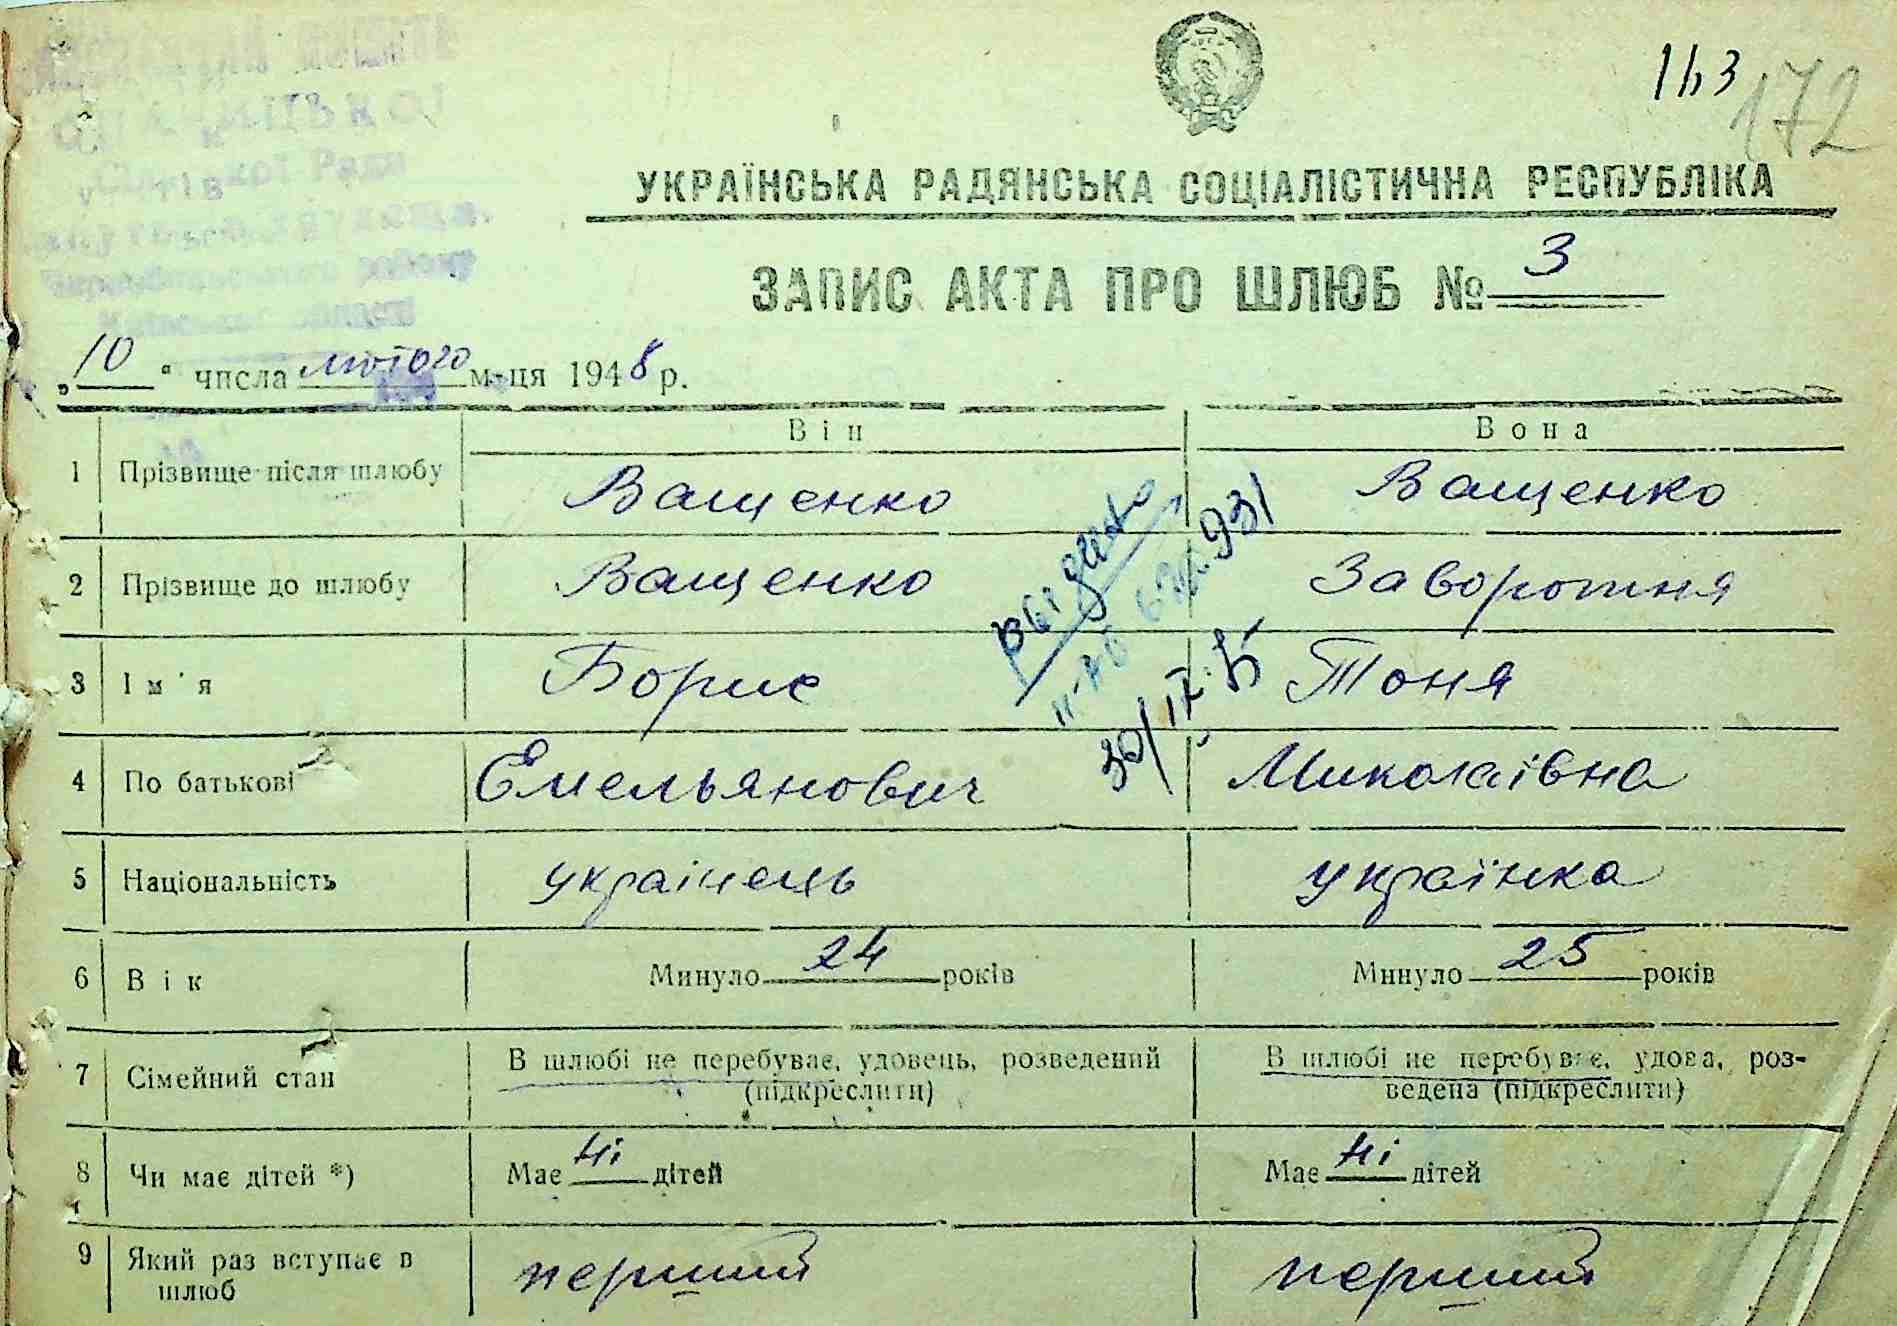 163 172
Сільської Ради
району
Київської області
УКРАЇНСЬКА РАДЯНСЬКА СОЦІАЛІСТИЧНА РЕСПУБЛІКА
ЗАПИС АКТА ПРО ШЛЮБ № 3
„10“ числа лютого м-ця 1948 р.
Він Вона
1 Прізвище після шлюбу Ващенко Ващенко
2 Прізвище до шлюбу Ващенко Заворотня
3 Ім'я Борис Тоня
4 По батькові Емельянович Миколаівна
5 Національність украінець українка
6 Вік Минуло 24 років Минуло 25 років
7 Сімейний стан В шлюбі не перебуває, удовець, розведений В шлюбі не перебуває, удова, роз-
(підкреслити) ведена (підкреслити)
8 Чи має дітей *) Має ні дітей Має ні дітей
9 Який раз вступає в перший перший
шлюб